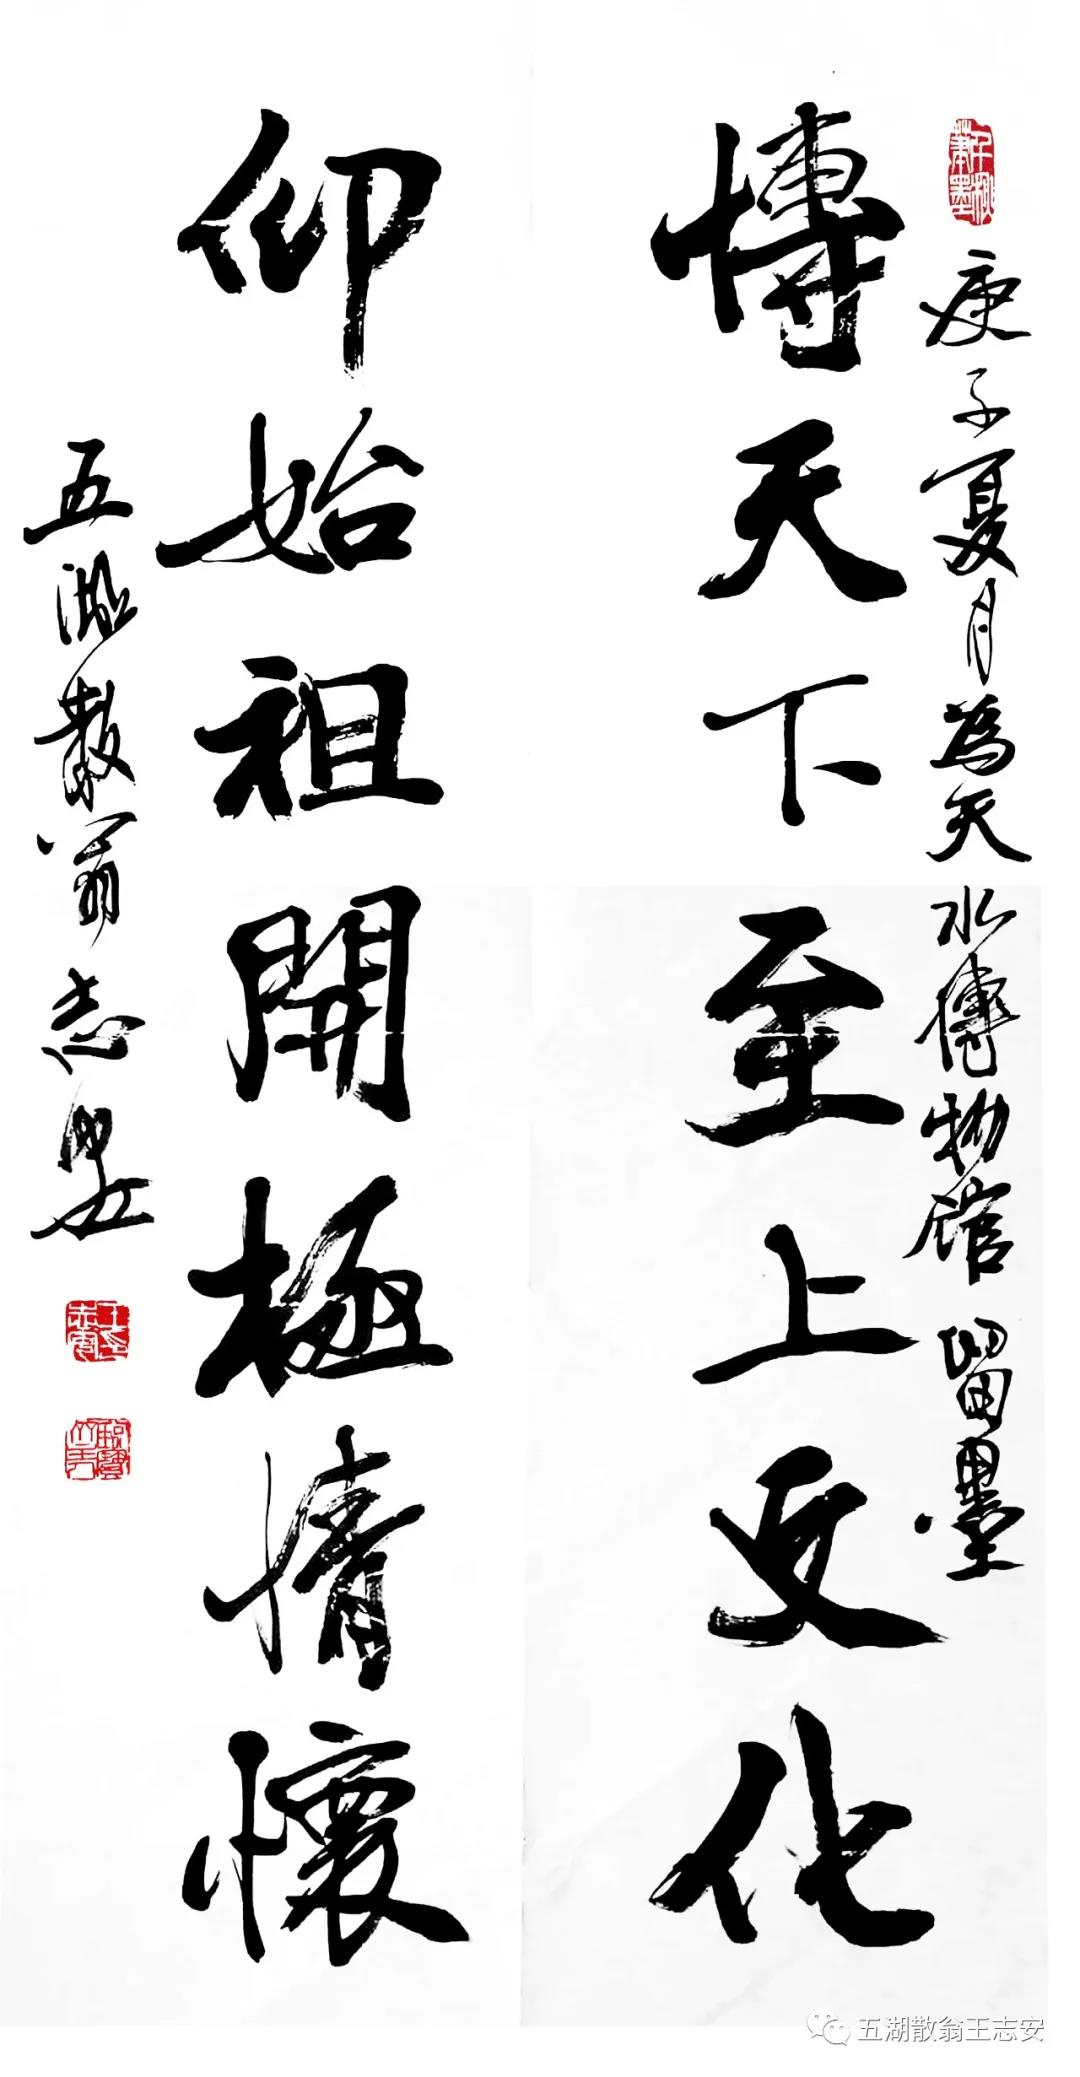 庚子夏月為天水博物馆留墨
博天下至上文化
仰始祖開極情懷
五湖散翁志安
五湖散翁王志安